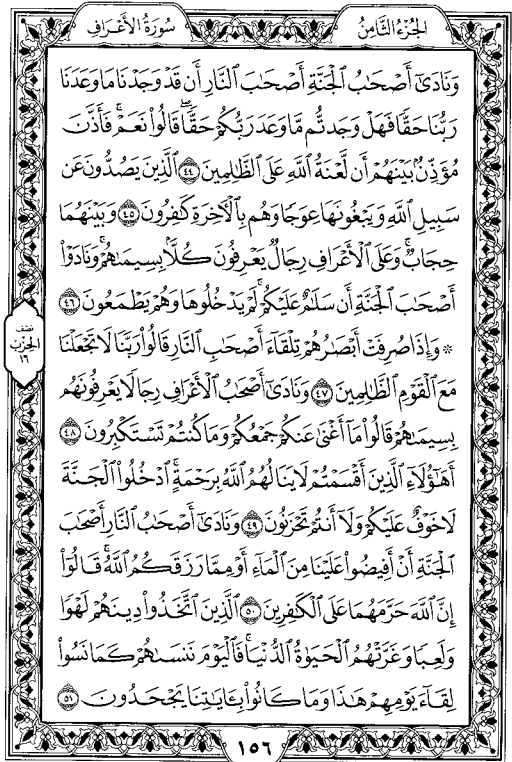 سُورَةُ الأَعْرَافِ
الجُزْءُ الثَّامِنُ
وَنَادَىٰٓ أَصْحَٰبُ ٱلْجَنَّةِ أَصْحَٰبَ ٱلنَّارِ أَن قَدْ وَجَدْنَا مَا وَعَدَنَا
رَبُّنَا حَقًّا فَهَلْ وَجَدتُّم مَّا وَعَدَ رَبُّكُمْ حَقًّا ۖ قَالُوا۟ نَعَمْ ۚ فَأَذَّنَ
مُؤَذِّنٌۢ بَيْنَهُمْ أَن لَّعْنَةُ ٱللَّهِ عَلَى ٱلظَّٰلِمِينَ ٤٤ ٱلَّذِينَ يَصُدُّونَ عَن
سَبِيلِ ٱللَّهِ وَيَبْغُونَهَا عِوَجًا وَهُم بِٱلْءَاخِرَةِ كَٰفِرُونَ ٤٥ وَبَيْنَهُمَا
حِجَابٌ ۚ وَعَلَى ٱلْأَعْرَافِ رِجَالٌ يَعْرِفُونَ كُلًّۢا بِسِيمَىٰهُمْ ۚ وَنَادَوْا۟
أَصْحَٰبَ ٱلْجَنَّةِ أَن سَلَٰمٌ عَلَيْكُمْ ۚ لَمْ يَدْخُلُوهَا وَهُمْ يَطْمَعُونَ ٤٦
۞ وَإِذَا صُرِفَتْ أَبْصَٰرُهُمْ تِلْقَآءَ أَصْحَٰبِ ٱلنَّارِ قَالُوا۟ رَبَّنَا لَا تَجْعَلْنَا
مَعَ ٱلْقَوْمِ ٱلظَّٰلِمِينَ ٤٧ وَنَادَىٰٓ أَصْحَٰبُ ٱلْأَعْرَافِ رِجَالًا يَعْرِفُونَهُم
بِسِيمَىٰهُمْ قَالُوا۟ مَآ أَغْنَىٰ عَنكُمْ جَمْعُكُمْ وَمَا كُنتُمْ تَسْتَكْبِرُونَ ٤٨
أَهَٰٓؤُلَآءِ ٱلَّذِينَ أَقْسَمْتُمْ لَا يَنَالُهُمُ ٱللَّهُ بِرَحْمَةٍ ۚ ٱدْخُلُوا۟ ٱلْجَنَّةَ
لَا خَوْفٌ عَلَيْكُمْ وَلَآ أَنتُمْ تَحْزَنُونَ ٤٩ وَنَادَىٰٓ أَصْحَٰبُ ٱلنَّارِ أَصْحَٰبَ
ٱلْجَنَّةِ أَنْ أَفِيضُوا۟ عَلَيْنَا مِنَ ٱلْمَآءِ أَوْ مِمَّا رَزَقَكُمُ ٱللَّهُ ۚ قَالُوٓا۟
إِنَّ ٱللَّهَ حَرَّمَهُمَا عَلَى ٱلْكَٰفِرِينَ ٥٠ ٱلَّذِينَ ٱتَّخَذُوا۟ دِينَهُمْ لَهْوًا
وَلَعِبًا وَغَرَّتْهُمُ ٱلْحَيَوٰةُ ٱلدُّنْيَا ۚ فَٱلْيَوْمَ نَنسَىٰهُمْ كَمَا نَسُوا۟
لِقَآءَ يَوْمِهِمْ هَٰذَا وَمَا كَانُوا۟ بِـَٔايَٰتِنَا يَجْحَدُونَ ٥١
نصف
الحزب
١٦
١٥٦